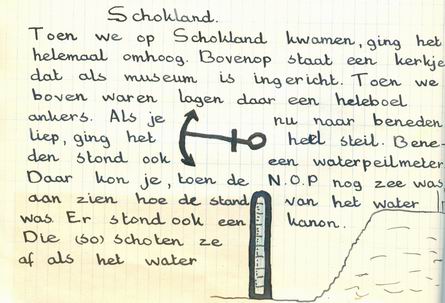 Schokland.
Toen we op Schokland kwamen, ging het
helemaal omhoog. Bovenop staat een kerkje
dat als museum is ingericht. Toen we
boven waren lagen daar een heleboel
ankers. Als je nu naar beneden
liep, ging het heel steil. Bene-
den stond ook een waterpeilmeter
Daar kon je, toen de N.O.P nog zee was
aan zien hoe de stand van het water
was. Er stond ook een kanon.
Die (so) schoten ze
af als het water